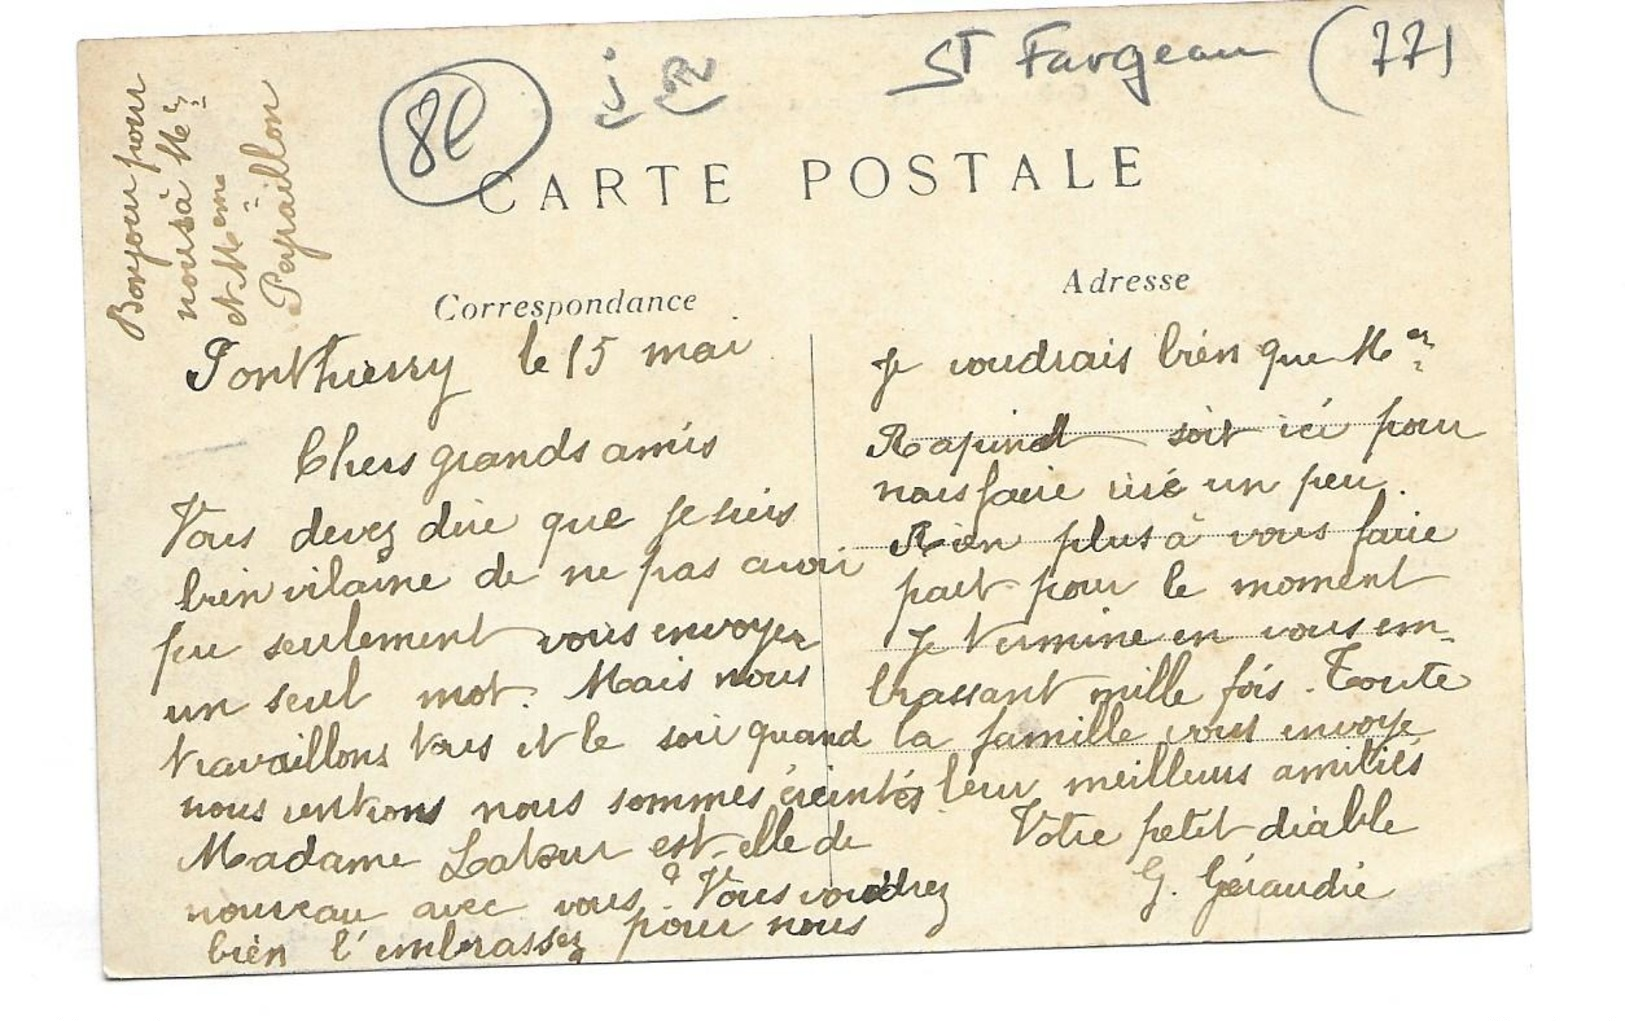 St Fargeau (77)
8E
CARTE POSTALE
Correspondance
Adresse
Bonjour pour
nous à Mr
et Mme
Papaillon
Ponthierry le 15 mai
Chers grands amis
Vous devez dire que je suis
bien vilaine de ne pas avoir
pu seulement vous envoyer
un seul mot. Mais nous
travaillons tous et le soir quand
nous rentrons nous sommes éreintés
Madame Latour est-elle de
nouveau avec vous ? Vous voudrez
bien l'embrassez pour nous
Je voudrais bien que Mr
Rapinat soit ici pour
nous faire rire un peu.
Rien plus à vous faire
part pour le moment
Je termine en vous em-
brassant mille fois. Toute
la famille vous envoye
leur meilleurs amitiés
Votre petit diable
G. Géraudie